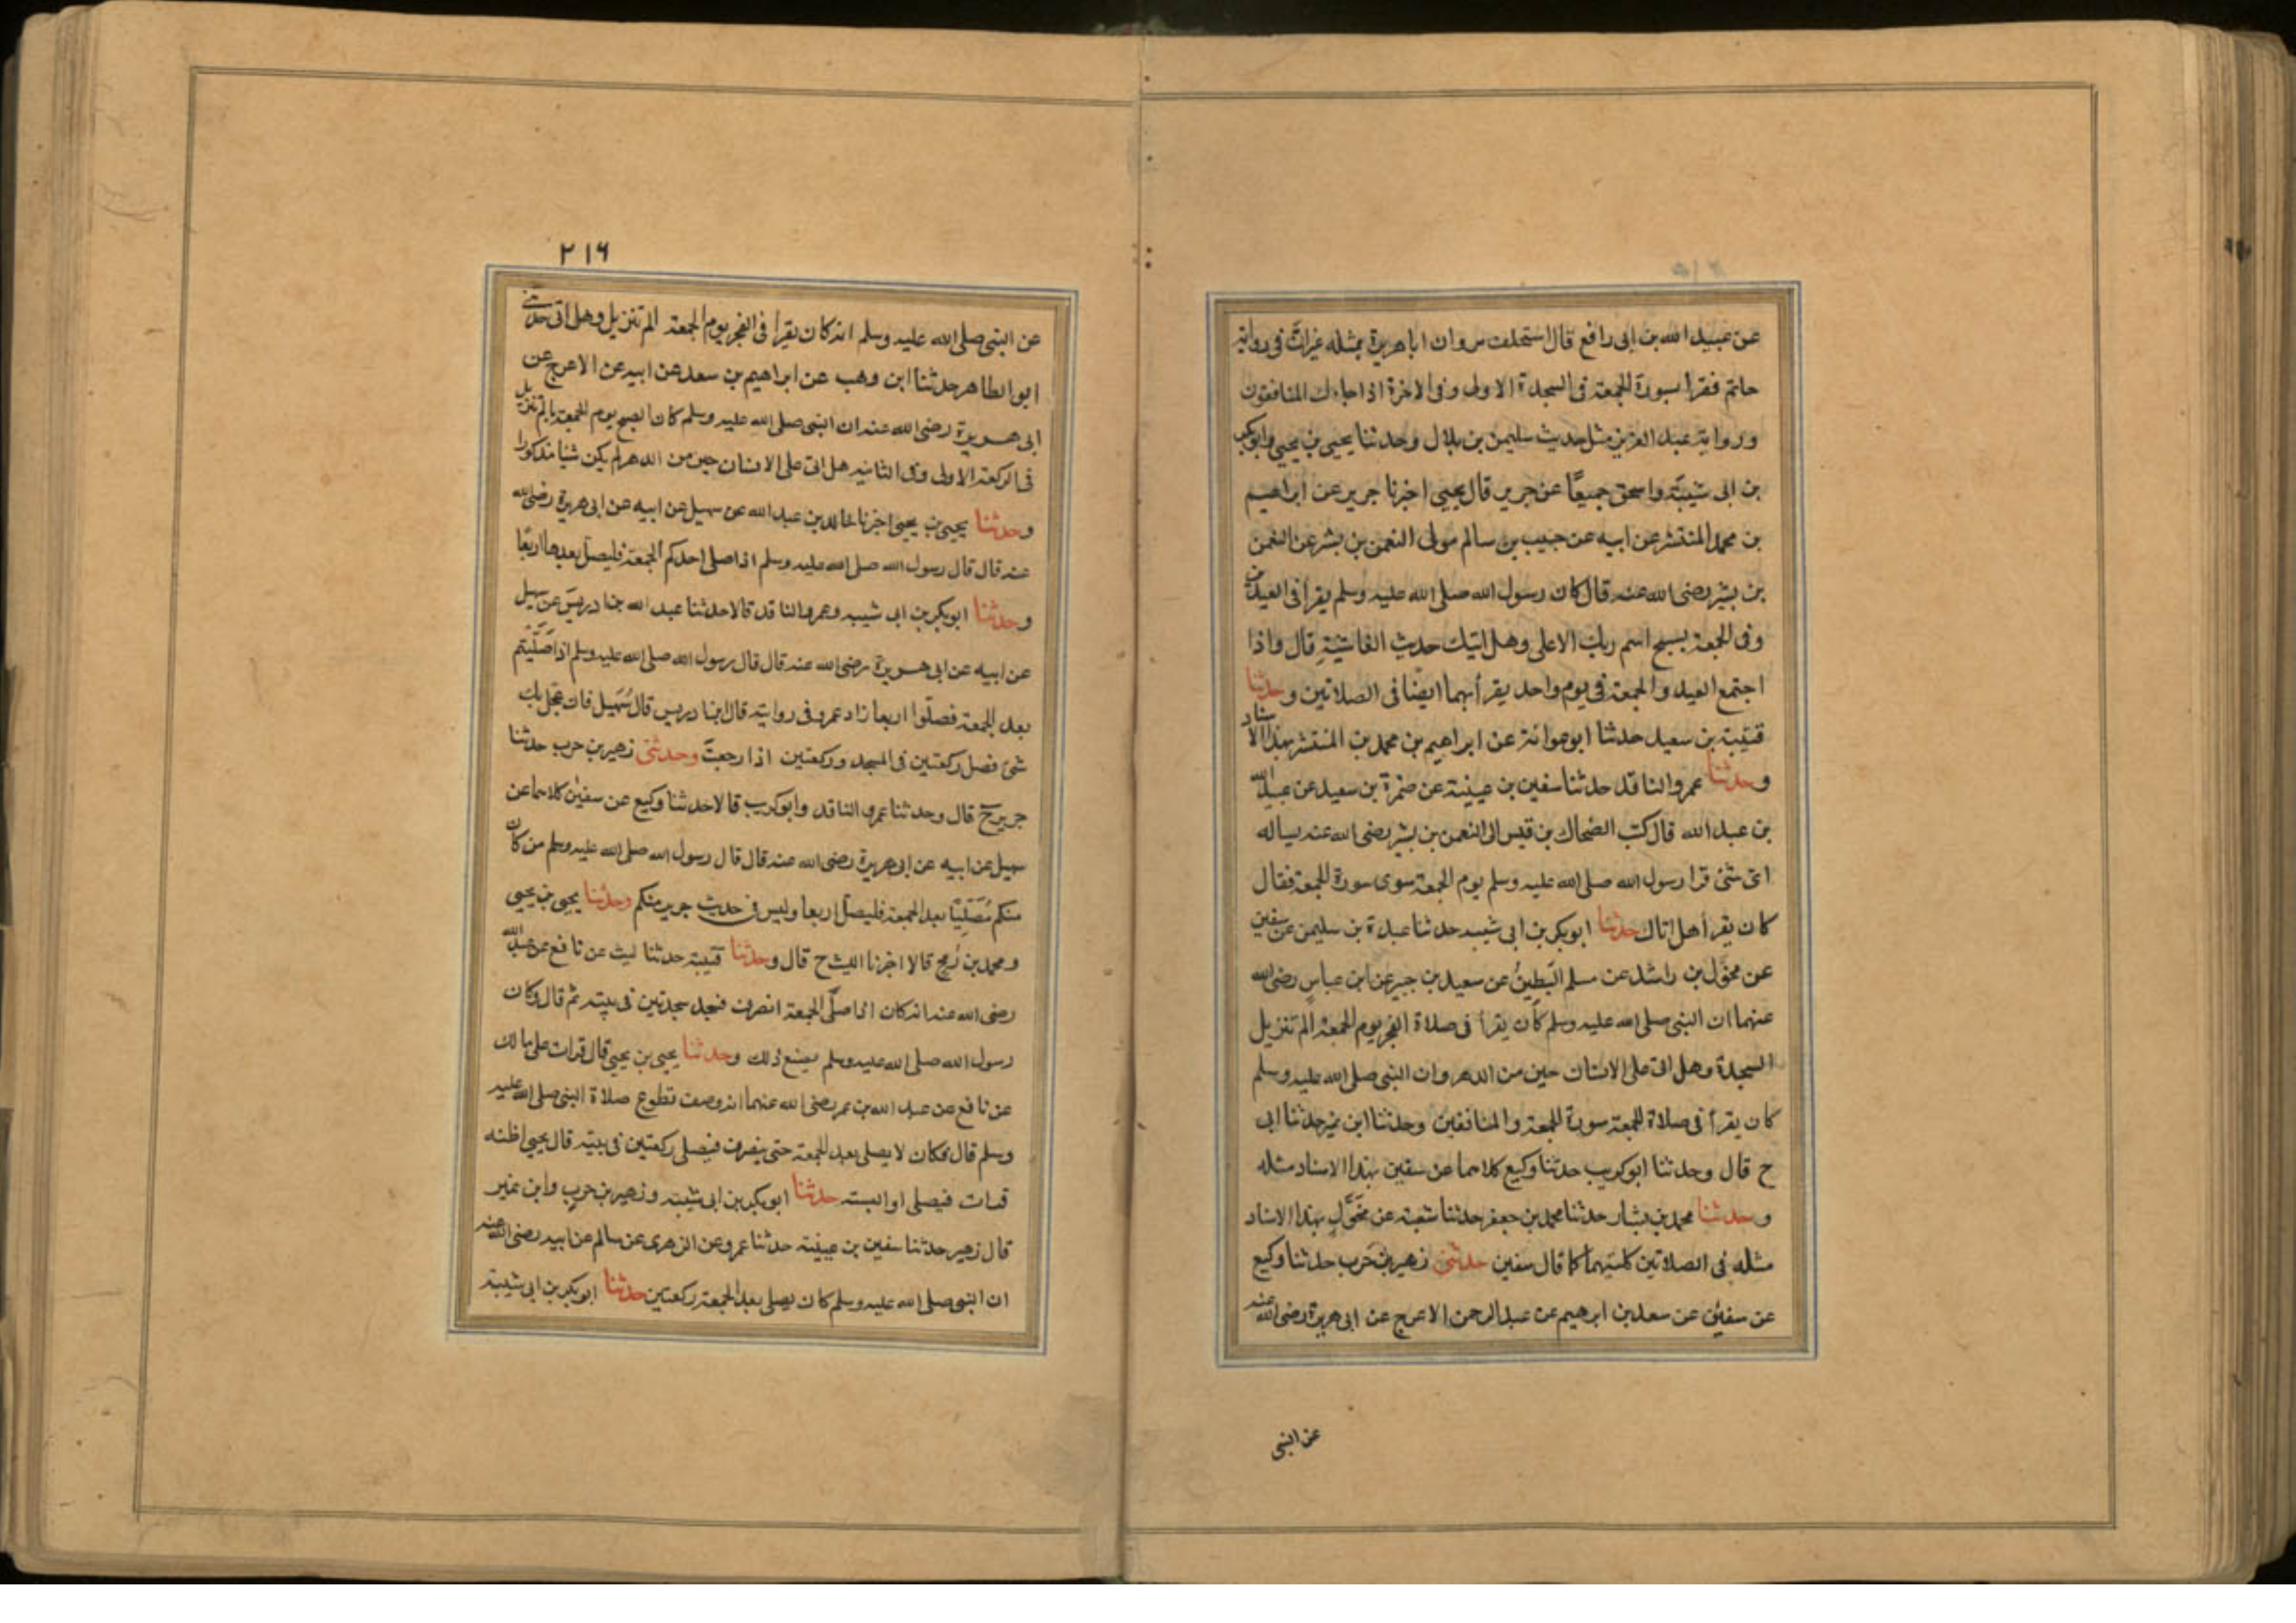 عن عبيد الله بن ابى رافع قال استخلف مروان ابا هريرة بمثله غيرانّ فى رواية
حاتم فقرا بسورة الجمعة فى السجدة الاولى وفى الاخرة اذا جاءك المنافقون
ورواية عبد العزيز مثل حديث سليمن بن بلال وحدثنا يحيى بن يحيى وابو بكر
بن ابى شيبة واسحق جميعًا عن جرير قال يحيى اخبرنا جرير عن ابراهيم
بن محمد المنتشر عن ابيه عن حبيب بن سالم مولى النعمن بن بشير عن النعمن
بن بشير رضى الله عنه قال كان رسول الله صلى الله عليه وسلم يقرأ فى العيدين
وفى الجمعة بسبح اسم ربك الاعلى وهل اتيك حديث الغاشيةِ قال واذا
اجتمع العيد والجمعة فى يوم واحد يقرأ بهما ايضا فى الصلاتين وحدثنا
قتيبة بن سعيد حدثنا ابو عوانة عن ابراهيم بن محمد بن المنتشر بهذا الاسناد
وحدثنا عمرو الناقد حدثنا سفين بن عيينة عن ضمرة بن سعيد عن عبيد الله
بن عبد الله قال كتب الضحاك بن قيس الى النعمن بن بشير رضى الله عنه يساله
اى شئ قرا رسول الله صلى الله عليه وسلم يوم الجمعة سوى سورة الجمعة فقال
كان يقرأ هل اتاك حدثنا ابو بكر بن ابى شيبه حدثنا عبدة بن سليمن عن سفين
عن مخوّل بن راشد عن مسلم البَطِينُ عن سعيد بن جبير عن ابن عباس رضى الله
عنهما ان النبى صلى الله عليه وسلم كان يقرأ فى صلاة الفجر يوم الجمعة الم تنزيل
السجدة وهل اتى على الانسان حين من الدهر وان النبى صلى الله عليه وسلم
كان يقرأ فى صلاة الجمعة سورة الجمعة والمنافقين وحدثنا ابن نمير حدثنا ابى
ح قال وحدثنا ابو كريب حدثنا وكيع كلاهما عن سفين بهذا الاسناد مثله
وحدثنا محمد بن بشار حدثنا محمد بن جعفر حدثنا شعبة عن مخوّل بهذا الاسناد
مثله فى الصلاتين كلتيهما كما قال سفين حدثنى زهير بن حَرب حدثنا وكيع
عن سفين عن سعد بن ابرهيم عن عبد الرحمن الاعرج عن ابى هريرة رضى الله عنه
عن النبى
٢١٦
عن النبى صلى الله عليه وسلم انه كان يقرا فى الفجر يوم الجمعة الم تنزيل وهل اتى حدثنى
ابو الطاهر حدثنا ابن وهب عن ابراهيم بن سعد عن ابيه عن الاعرج عن
ابى هريرة رضى الله عنه ان النبى صلى الله عليه وسلم كان الصبح يوم الجمعة بالم تنزيل
فى الركعة الاولى وفى الثانيه هل اتى على الانسان حين من الدهر لم يكن شيئا مذكورا
وحدثنا يحيى بن يحيى اخبرنا خالد بن عبد الله عن سهيل عن ابيه عن ابى هريرة رضى الله
عنه قال قال رسول الله صلى الله عليه وسلم اذا صلى احدكم الجمعة فليصل بعدها اربعًا
وحدثنا ابو بكر بن ابى شيبه وعمرو الناقد قالا حدثنا عبد الله بن ادريسَ عن سهيل
عن ابيه عن ابى هريرة رضى الله عنه قال قال رسول الله صلى الله عليه وسلم اذا صَلَّيْتم
بعد الجمعة فصلّوا اربعا زاد عمرو فى روايته قال ابن ادريس قال سُهَيل فان عجل بك
شئ فصل ركعتين فى المسجد وركعتين اذا رجعتَ وحدثنى زهير بن حرب حدثنا
جرير ح قال وحدثنا عمرو الناقد وابو كريب قالا حدثنا وكيع عن سفين كلاهما عن
سهيل عن ابيه عن ابى هريرة رضى الله عنه قال قال رسول الله صلى الله عليه وسلم من كان
منكم مُصَلِّيًا بعد الجمعة فليصل اربعا وليس فى حديث جرير منكم وحدثنا يحيى بن يحيى
ومحمد بن رُمح قالا اخبرنا الليث ح قال وحدثنا قتيبة حدثنا ليث عن نافع عن عبد الله
رضى الله عنه انه كان اذا صلّى الجمعة انصرف فسجد سجدتين فى بيته ثم قال وكان
رسول الله صلى الله عليه وسلم يصنع ذلك وحدثنا يحيى بن يحيى قال قرات على مالك
عن نافع عن عبد الله بن عمر رضى الله عنهما انه وصف تطوع صلاة النبى صلى الله عليه
وسلم قال فكان لا يصلى بعد الجمعة حتى ينصرف فيصلى ركعتين فى بيته قال يحيى اظنه
قرات فيصلى او البته حدثنا ابو بكر بن ابى شيبه وزهير بن حرب وابن نمير
قال زهير حدثنا سفين بن عيينة حدثنا عمرو عن الزهرى عن سالم عن ابيه رضى الله عنه
ان النبى صلى الله عليه وسلم كان يصلى بعد الجمعة ركعتين حدثنا ابو بكر بن ابى شيبة